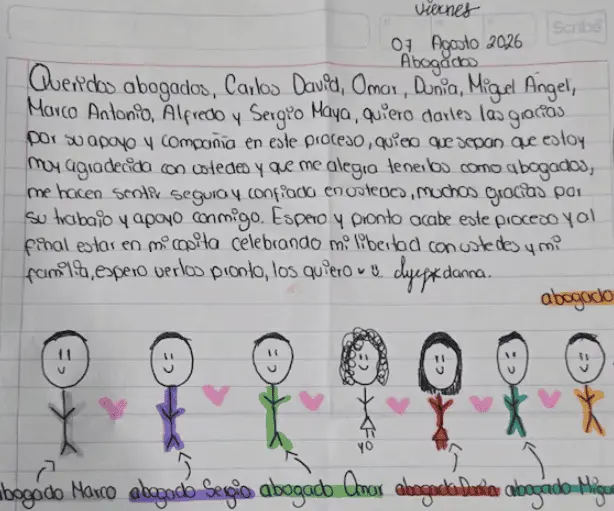 Viernes
Scribe
07 Agosto 2026
Abogados
Queridos abogados, Carlos David, Omar, Dunia, Miguel Angel,
Marco Antonio, Alfredo y Sergio Maya, quiero darles las gracias
por su apoyo y compañia en este proceso, quiero que sepan que estoy
muy agradecida con ustedes y que me alegra tenerlos como abogados,
me hacen sentir segura y confiada en ustedes, muchas gracias por
su trabajo y apoyo conmigo. Espero y pronto acabe este proceso y al
final estar en mi casita celebrando mi libertad con ustedes y mi
familia, espero verlos pronto, los quiero
abogado
YO
abogado Marco abogado Sergio abogado Omar abogado Dunia abogado Migu